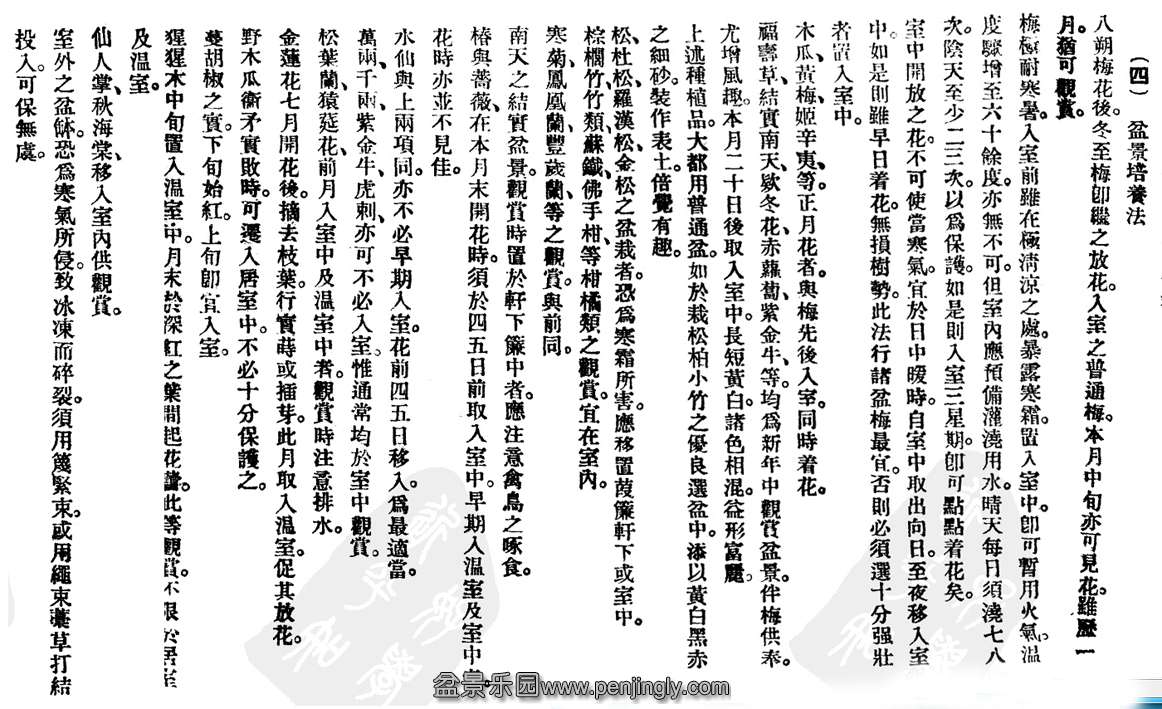 (四) 盆景培養法
八朔梅花後。冬至梅卽繼之放花。入室之普通梅。本月中旬亦可見花。雖歷一
月。猶可觀賞。
梅樹耐寒暑。入室前雖在極淸凉之處。暴露寒霜。置入室中。卽可暫用火氣。溫
度驟增至六十餘度。亦無不可。但室內應預備灌澆用水。晴天每日須澆七八
次。陰天至少二三次。以爲保護。如是則入室三星期。卽可點點着花矣。
室中開放之花。不可使當寒氣。宜於日中暖時。自室中取出向日。至夜移入室
中。如是則雖早日着花。無損樹勢。此法行諸盆梅最宜。否則必須選十分强壯
者置入室中。
木瓜、黃梅、姬辛夷、等。正月花者。與梅先後入室。同時着花。
福壽草、結實南天、欵冬花、赤蘿蔔、紫金牛、等。均爲新年中觀賞盆景。伴梅供奉。
尤增風趣。本月二十日後。取入室中。長短黃白。諸色相混。益形富麗。
上述種植品。大都用普通盆。如於栽松柏小竹之優良選盆中。添以黃白黑赤
之細砂。裝作表土。倍覺有趣。
松、杜松、羅漢松、金松之盆栽者。恐爲寒霜所害。應移置葭簾軒下或室中。
棕櫚竹、竹類、蘇鐵、佛手柑、等柑橘類之觀賞。宜在室內。
寒菊、鳳凰蘭、豐歲蘭、等之觀賞。與前同。
南天之結實盆景。觀賞時置於軒下簾中者。應注意禽鳥之啄食。
椿與薔薇。在本月末開花時。須於四五日前取入室中。早期入溫室及室中者。
花時亦並不見佳。
水仙與上兩項同。亦不必早期入室。花前四五日移入。爲最適當。
萬兩、千兩、紫金牛、虎刺、亦可不必入室。惟通常均於室中觀賞。
松葉蘭、猿筵花、前月入室中及溫室中者。觀賞時注意排水。
金蓮花七月開花後。摘去枝葉。行實蒔或插芽。此月取入溫室。促其放花。
野木瓜、衞矛實敗時。可遷入居室中。不必十分保護之。
蔓胡椒之實。下旬始紅。上旬卽宜入室。
猩猩木中旬置入溫室中。月末於深紅之葉間起花蕾。此等觀賞。不限於居室
及溫室。
仙人掌、秋海棠、移入室內供觀賞。
室外之盆鉢。恐爲寒氣所侵。致冰凍而碎裂。須用篾緊束。或用繩束藁草打結
投入。可保無虞。
盆景乐园www.penjingly.com